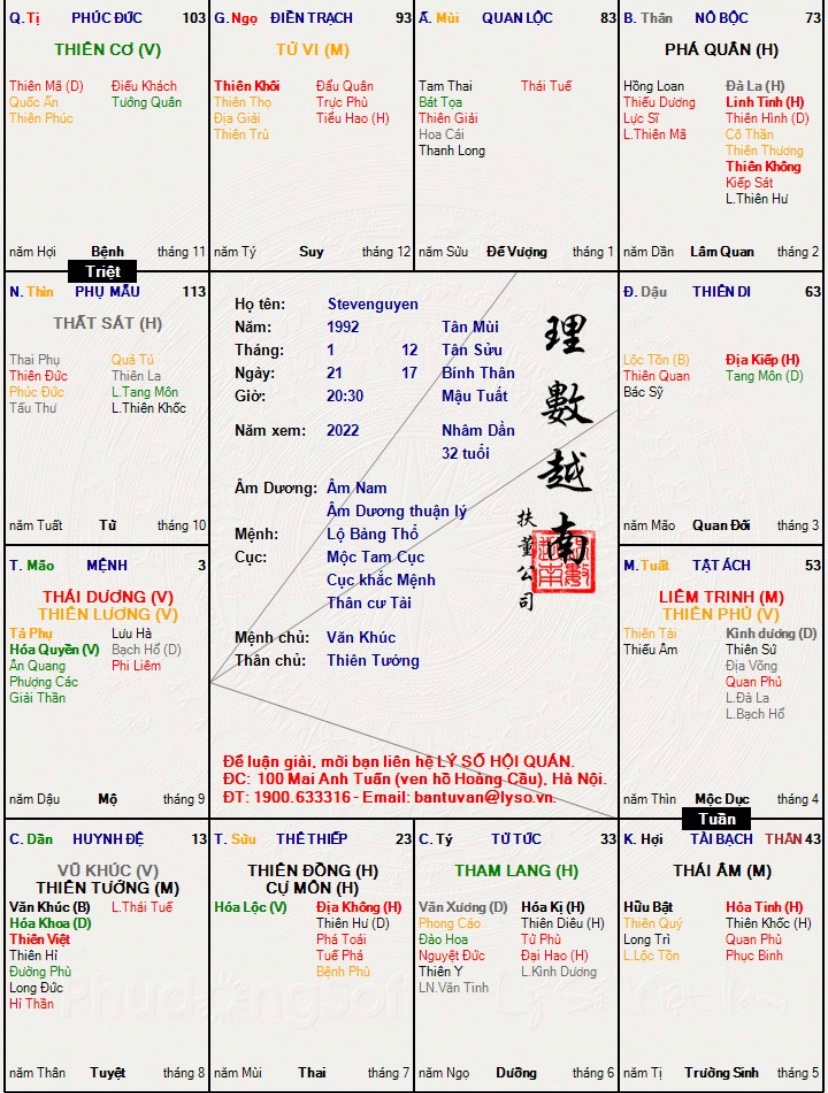 Q. Tị PHÚC ĐỨC 103
THIÊN CƠ (V)
Thiên Mã (D) Điếu Khách
Quốc Ấn Tướng Quân
Thiên Phúc
năm Hợi Bệnh tháng 11
G. Ngọ ĐIỀN TRẠCH 93
TỬ VI (M)
Thiên Khôi Đẩu Quân
Thiên Thọ Trực Phù
Địa Giải Tiểu Hao (H)
Thiên Trù
năm Tý Suy tháng 12
Ấ. Mùi QUAN LỘC 83
Tam Thai Thái Tuế
Bát Tọa
Thiên Giải
Hoa Cái
Thanh Long
năm Sửu Đế Vượng tháng 1
B. Thân NÔ BỘC 73
PHÁ QUÂN (H)
Hồng Loan Đà La (H)
Thiếu Dương Linh Tinh (H)
Lực Sĩ Thiên Hình (D)
L.Thiên Mã Cô Thần
Thiên Thương
Thiên Không
Kiếp Sát
L.Thiên Hư
năm Dần Lâm Quan tháng 2
Triệt
N. Thìn PHỤ MẪU 113
THẤT SÁT (H)
Thai Phụ Quả Tú
Thiên Đức Thiên La
Phúc Đức L.Tang Môn
Tấu Thư L.Thiên Khốc
năm Tuất Tử tháng 10
Họ tên: Stevenguyen
Năm: 1992 Tân Mùi
Tháng: 1 12 Tân Sửu
Ngày: 21 17 Bính Thân
Giờ: 20:30 Mậu Tuất
Năm xem: 2022 Nhâm Dần
32 tuổi
Âm Dương: Âm Nam
Âm Dương thuận lý
Mệnh: Lộ Bàng Thổ
Cục: Mộc Tam Cục
Cục khắc Mệnh
Thân cư Tài
Mệnh chủ: Văn Khúc
Thân chủ: Thiên Tướng
理數越南
扶董公司
Để luận giải, mời bạn liên hệ LÝ SỐ HỘI QUÁN.
ĐC: 100 Mai Anh Tuấn (ven hồ Hoàng Cầu), Hà Nội.
ĐT: 1900.633316 - Email: bantuvan@lyso.vn.
Đ. Dậu THIÊN DI 63
Lộc Tồn (B) Địa Kiếp (H)
Thiên Quan Tang Môn (D)
Bác Sỹ
năm Mão Quan Đới tháng 3
T. Mão MỆNH 3
THÁI DƯƠNG (V)
THIÊN LƯƠNG (V)
Tả Phụ Lưu Hà
Hóa Quyền (V) Bạch Hổ (D)
Ân Quang Phi Liêm
Phượng Các
Giải Thần
năm Dậu Mộ tháng 9
M. Tuất TẬT ÁCH 53
LIÊM TRINH (M)
THIÊN PHỦ (V)
Thiên Tài Kình dương (D)
Thiếu Âm Thiên Sứ
Địa Võng
Quan Phủ
L.Đà La
L.Bạch Hổ
năm Thìn Mộc Dục tháng 4
Tuần
C. Dần HUYNH ĐỆ 13
VŨ KHÚC (V)
THIÊN TƯỚNG (M)
Văn Khúc (B) L.Thái Tuế
Hóa Khoa (D)
Thiên Việt
Thiên Hỉ
Đường Phù
Long Đức
Hỉ Thần
năm Thân Tuyệt tháng 8
T. Sửu THÊ THIẾP 23
THIÊN ĐỒNG (H)
CỰ MÔN (H)
Hóa Lộc (V) Địa Không (H)
Thiên Hư (D)
Phá Toái
Tuế Phá
Bệnh Phù
năm Mùi Thai tháng 7
C. Tý TỬ TỨC 33
THAM LANG (H)
Văn Xương (D) Hóa Kị (H)
Phong Cáo Thiên Diêu (H)
Đào Hoa Tử Phù
Nguyệt Đức Đại Hao (H)
Thiên Y L.Kình Dương
LN.Văn Tinh
năm Ngọ Dưỡng tháng 6
K. Hợi TÀI BẠCH THÂN 43
THÁI ÂM (M)
Hữu Bật Hỏa Tinh (H)
Thiên Quý Thiên Khốc (H)
Long Trì Quan Phù
L.Lộc Tồn Phục Binh
năm Tị Trường Sinh tháng 5